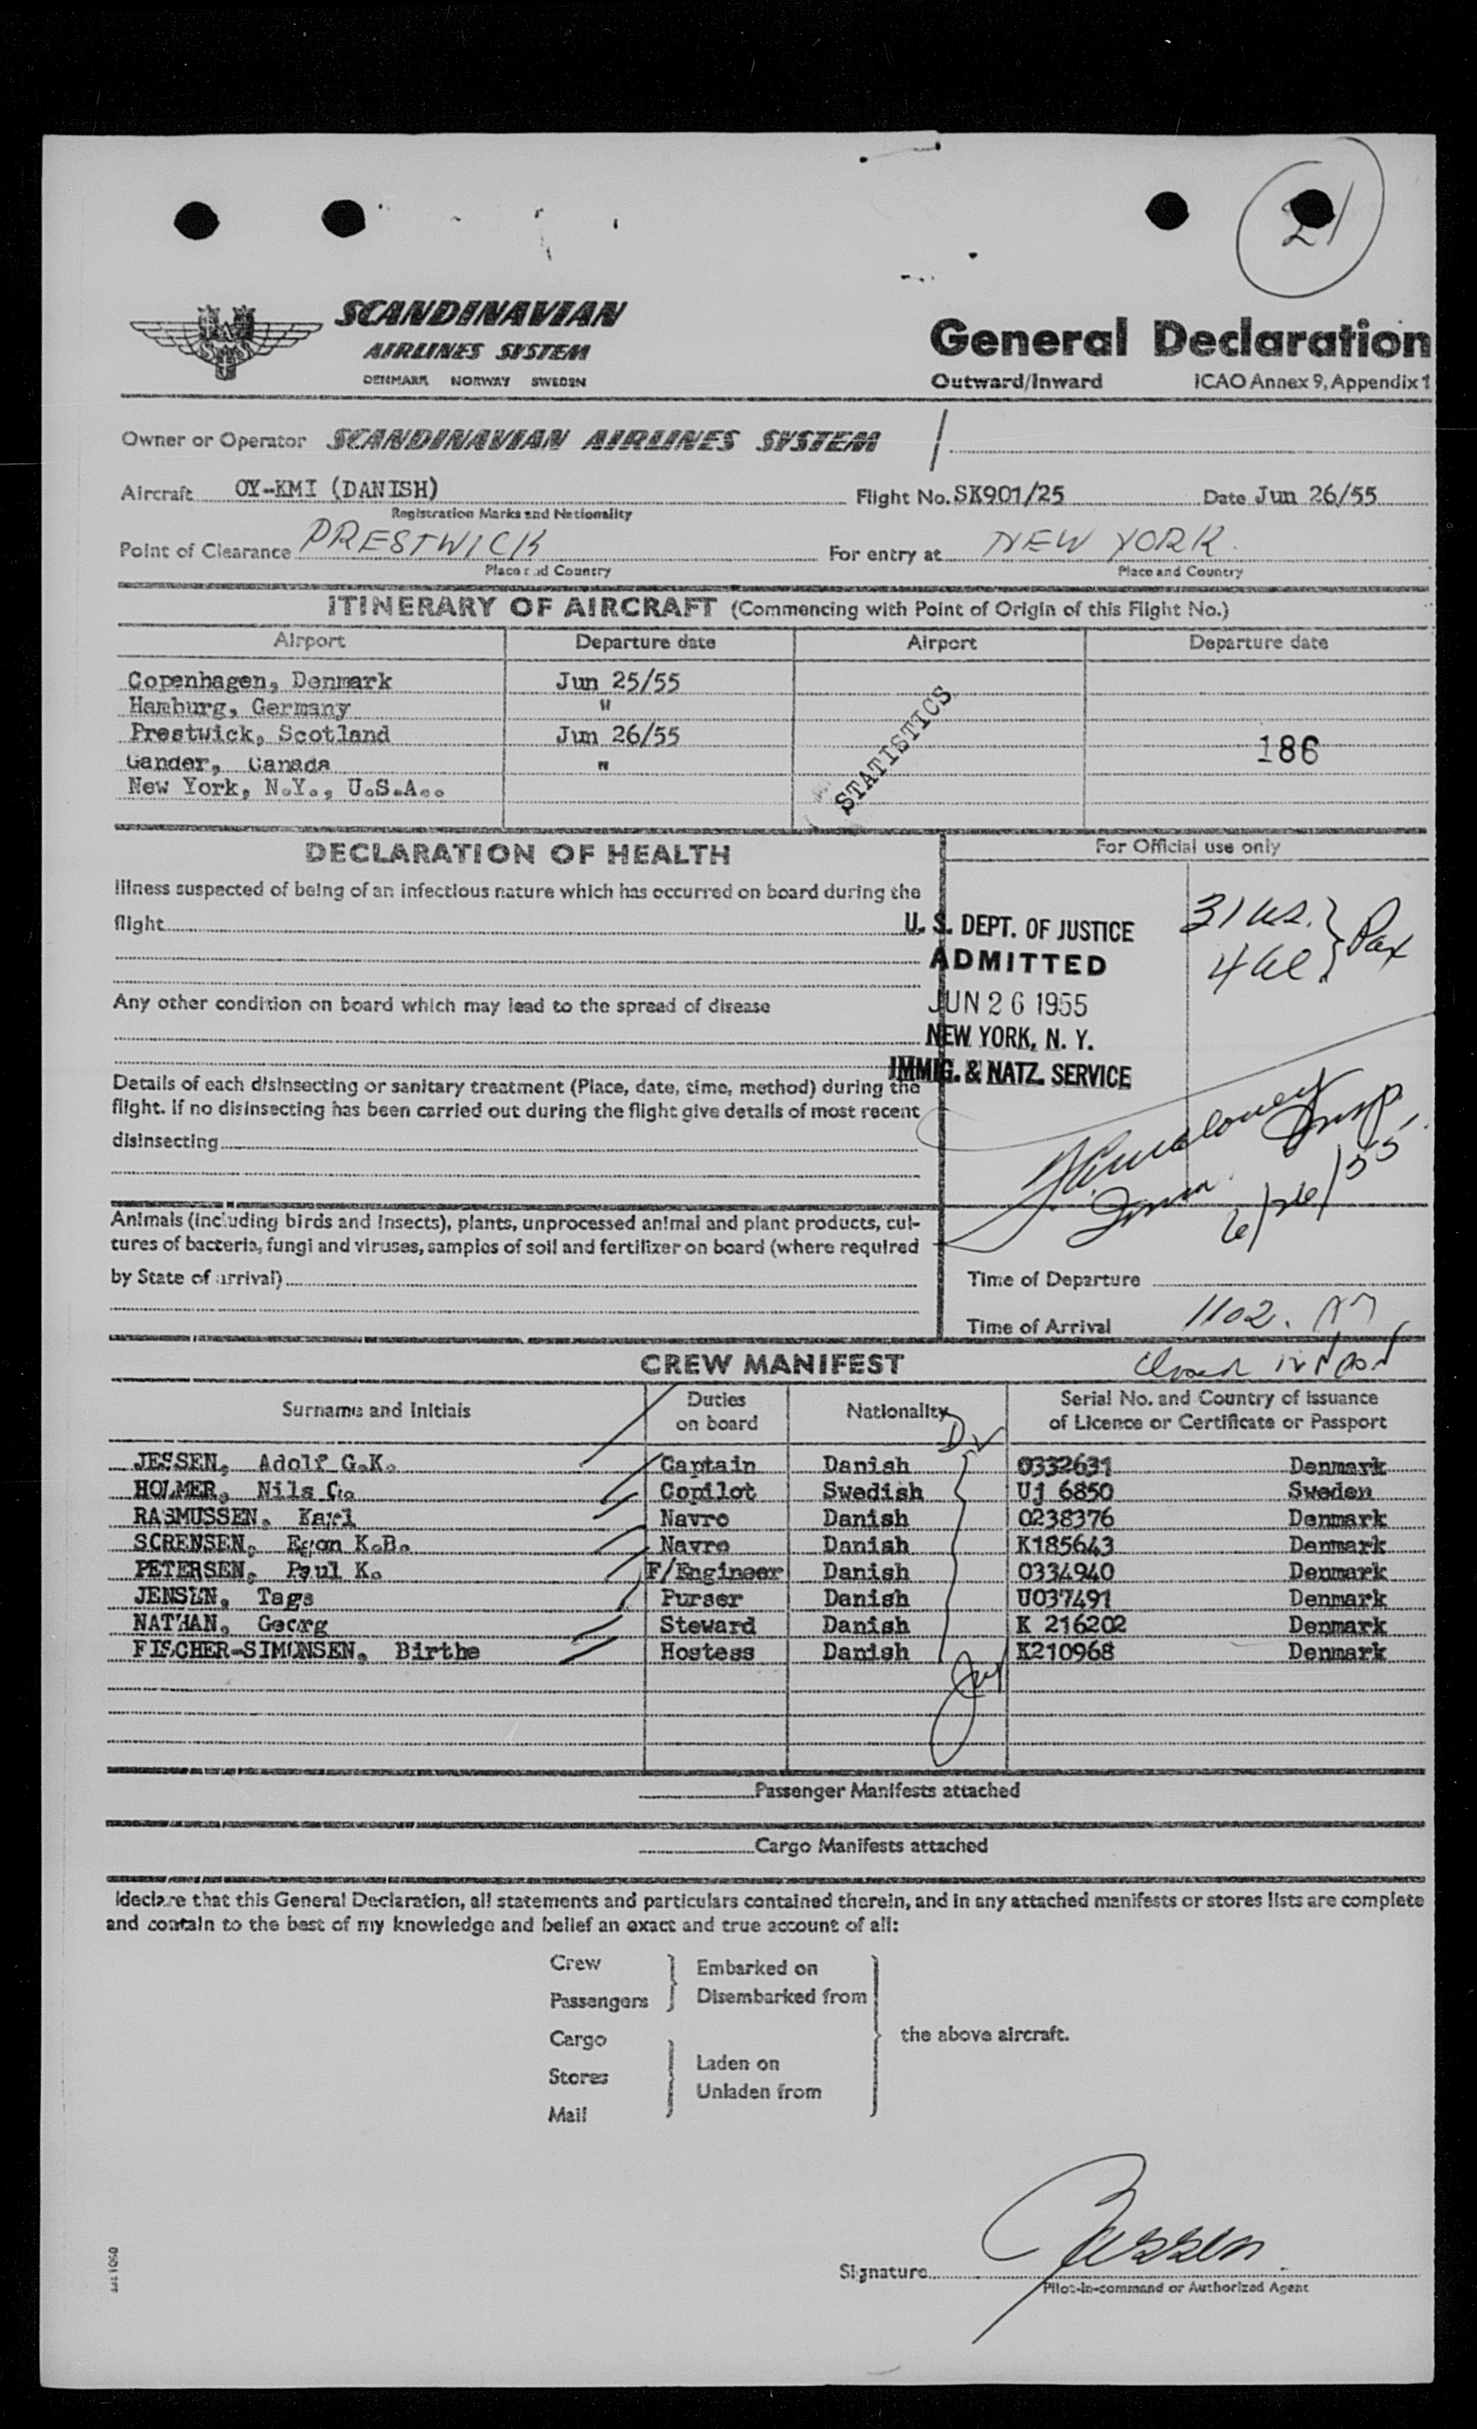 21
SCANDINAVIAN
AIRLINES SYSTEM
DENMARK NORWAY SWEDEN
General Declaration
Outward/Inward ICAO Annex 9, Appendix 1
Owner or Operator SCANDINAVIAN AIRLINES SYSTEM
Aircraft OY-KMI (DANISH) Flight No. SK901/25 Date Jun 26/55
Registration Marks and Nationality
Point of Clearance PRESTWICK For entry at NEW YORK.
Place and Country Place and Country
ITINERARY OF AIRCRAFT (Commencing with Point of Origin of this Flight No.)
Airport Departure date Airport Departure date
Copenhagen, Denmark Jun 25/55
Hamburg, Germany "
Prestwick, Scotland Jun 26/55
Gander, Canada "
New York, N.Y., U.S.A..
STATISTICS
186
DECLARATION OF HEALTH
For Official use only
Illness suspected of being of an infectious nature which has occurred on board during the
flight
Any other condition on board which may lead to the spread of disease
Details of each disinsecting or sanitary treatment (Place, date, time, method) during the
flight. If no disinsecting has been carried out during the flight give details of most recent
disinsecting
Animals (including birds and insects), plants, unprocessed animal and plant products, cul-
tures of bacteria, fungi and viruses, samples of soil and fertilizer on board (where required
by State of arrival)
U. S. DEPT. OF JUSTICE
ADMITTED
JUN 26 1955
NEW YORK, N. Y.
IMMIG. & NATZ. SERVICE
31 us. } Pax
4
Insp.
Imm. 6/26/55
Time of Departure
Time of Arrival 1102.
CREW MANIFEST
Surname and Initials Duties on board Nationality Serial No. and Country of Issuance of Licence or Certificate or Passport
JESSEN, Adolf G.K. Captain Danish 0332631 Denmark
HOLMER, Nils C. Copilot Swedish Uj 6850 Sweden
RASMUSSEN, Karl Navro Danish 0238376 Denmark
SORENSEN, Egon K.B. Navro Danish K185643 Denmark
PETERSEN, Paul K. F/Engineer Danish 0334940 Denmark
JENSEN, Tage Purser Danish U037491 Denmark
NATHAN, Georg Steward Danish K 216202 Denmark
FISCHER-SIMONSEN, Birthe Hostess Danish K210968 Denmark
Passenger Manifests attached
Cargo Manifests attached
I declare that this General Declaration, all statements and particulars contained therein, and in any attached manifests or stores lists are complete
and contain to the best of my knowledge and belief an exact and true account of all:
Crew
Passengers
Embarked on
Disembarked from
Cargo
Stores
Mail
Laden on
Unladen from
the above aircraft.
Signature Jessen.
Pilot-in-command or Authorized Agent